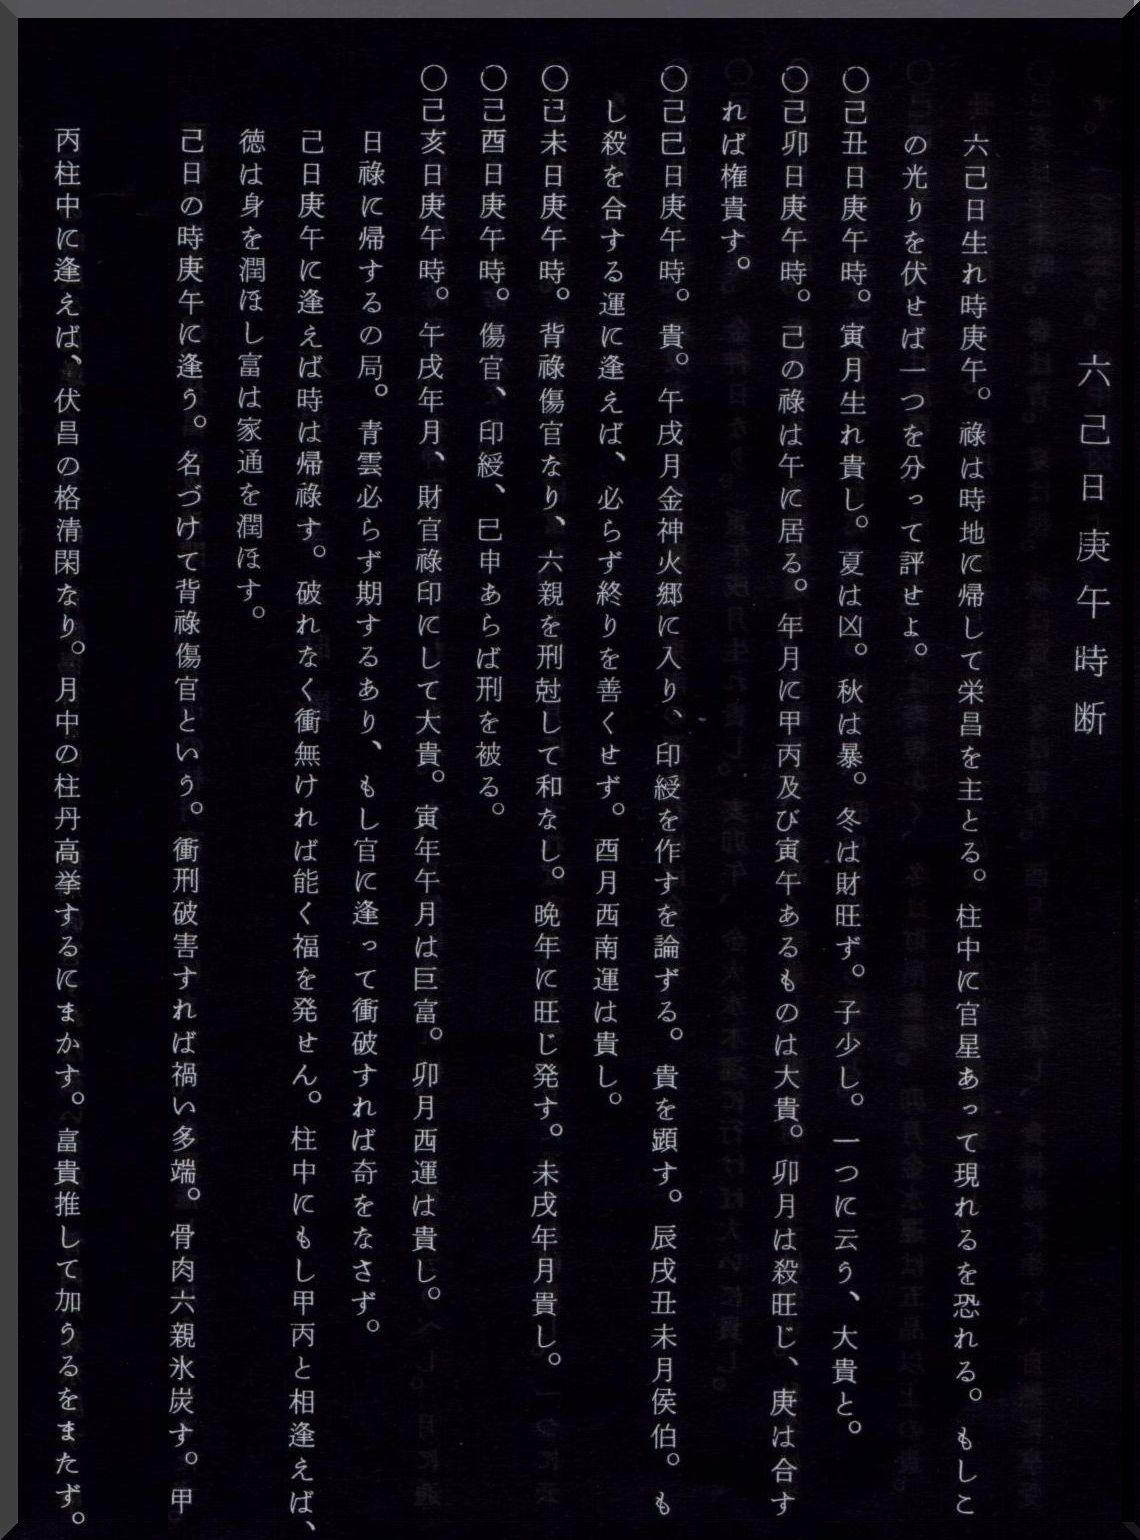 六己日庚午時断
六己日生れ時庚午。祿は時地に帰して栄昌を主とる。柱中に官星あって現れるを恐れる。もしこ
の光りを伏せば一つを分って評せよ。
〇己丑日庚午時。寅月生れ貴し。夏は凶。秋は暴。冬は財旺ず。子少し。一つに云う、大貴と。
〇己卯日庚午時。己の祿は午に居る。年月に甲丙及び寅午あるものは大貴。卯月は殺旺じ、庚は合す
れば権貴す。
〇己巳日庚午時。貴。午戌月金神火郷に入り、印綬を作すを論ずる。貴を顕す。辰戌丑未月侯伯。も
し殺を合する運に逢えば、必らず終りを善くせず。酉月西南運は貴し。
〇己未日庚午時。背祿傷官なり、六親を刑尅して和なし。晩年に旺じ発す。未戌年月貴し。
〇己酉日庚午時。傷官、印綬、巳申あらば刑を被る。
〇己亥日庚午時。午戌年月、財官祿印にして大貴。寅年午月は巨富。卯月西運は貴し。
日祿に帰するの局。青雲必らず期するあり、もし官に逢って衝破すれば奇をなさず。
己日庚午に逢えば時は帰祿す。破れなく衝無ければ能く福を発せん。柱中にもし甲丙と相逢えば、
徳は身を潤ほし富は家通を潤ほす。
己日の時庚午に逢う。名づけて背祿傷官という。衝刑破害すれば禍い多端。骨肉六親氷炭す。甲
丙柱中に逢えば、伏昌の格清閑なり。月中の柱丹高挙するにまかす。富貴推して加うるをまたず。